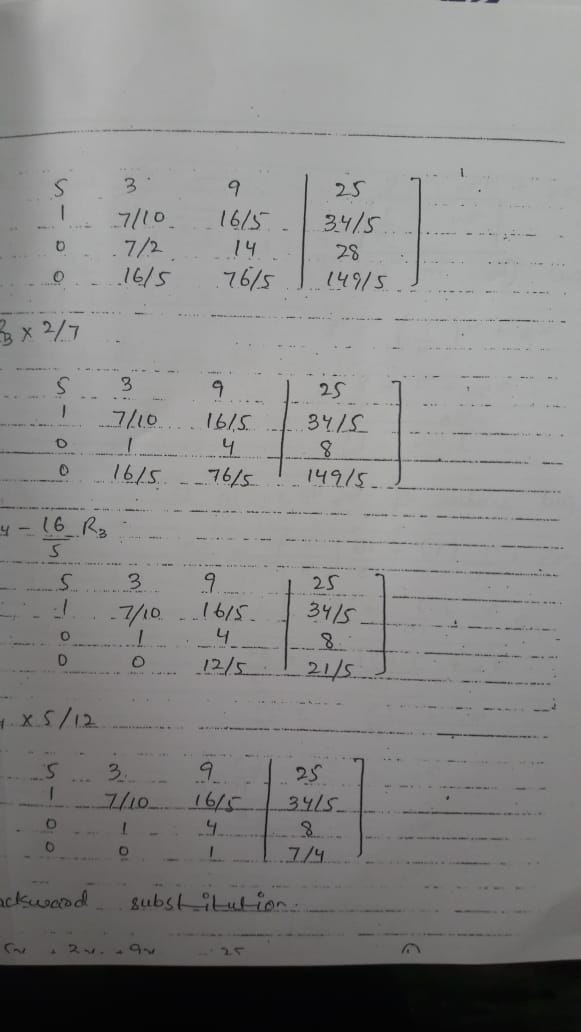 5 3 9 | 25 ]
1 7/10 16/5 | 34/5
0 7/2 14 | 28
0 16/5 76/5 | 149/5
R3 × 2/7
5 3 9 | 25 ]
1 7/10 16/5 | 34/5
0 1 4 | 8
0 16/5 76/5 | 149/5
4 - 16/5 R3
5 3 9 | 25 ]
1 7/10 16/5 | 34/5
0 1 4 | 8
0 0 12/5 | 21/5
× 5/12
5 3 9 | 25 ]
1 7/10 16/5 | 34/5
0 1 4 | 8
0 0 1 | 7/4
ackward substitution.
25